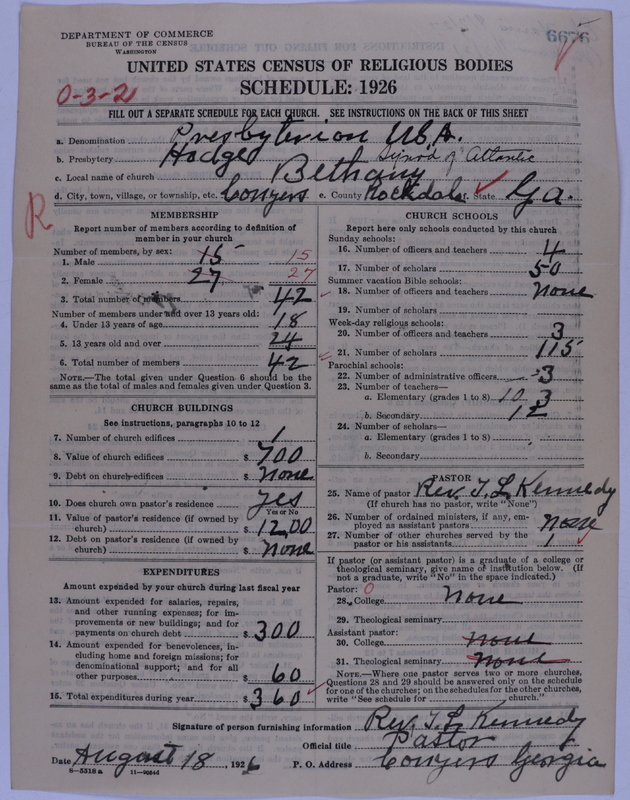 DEPARTMENT OF COMMERCE
BUREAU OF THE CENSUS
WASHINGTON
6676
UNITED STATES CENSUS OF RELIGIOUS BODIES
SCHEDULE: 1926
0-3-2
FILL OUT A SEPARATE SCHEDULE FOR EACH CHURCH. SEE INSTRUCTIONS ON THE BACK OF THIS SHEET
a. Denomination Presbyterion USA.
b. Presbytery Hodge Synod of Atlantic
c. Local name of church Bethany
d. City, town, village, or township, etc. Conyers e. County Rockdale f. State Ga.
R
MEMBERSHIP
Report number of members according to definition of member in your church
Number of members, by sex:
1. Male 15 15
2. Female 27 27
3. Total number of members 42
Number of members under and over 13 years old:
4. Under 13 years of age 18
5. 13 years old and over 24
6. Total number of members 42
NOTE.—The total given under Question 6 should be the
same as the total of males and females given under Question 3.
CHURCH BUILDINGS
See instructions, paragraphs 10 to 12
7. Number of church edifices 1
8. Value of church edifices $ 700
9. Debt on church edifices $ None
10. Does church own pastor's residence yes
Yes or No
11. Value of pastor's residence (if owned by
church) $ 1200
12. Debt on pastor's residence (if owned by
church) $ none
EXPENDITURES
Amount expended by your church during last fiscal year
13. Amount expended for salaries, repairs,
and other running expenses; for im-
provements or new buildings; and for
payments on church debt $ 300
14. Amount expended for benevolences, in-
cluding home and foreign missions; for
denominational support; and for all
other purposes $ 60
15. Total expenditures during year $ 360
CHURCH SCHOOLS
Report here only schools conducted by this church
Sunday schools:
16. Number of officers and teachers 4
17. Number of scholars 50
Summer vacation Bible schools:
18. Number of officers and teachers none
19. Number of scholars
Week-day religious schools:
20. Number of officers and teachers 3
21. Number of scholars 115
Parochial schools:
22. Number of administrative officers 3
23. Number of teachers—
a. Elementary (grades 1 to 8) 10 3
b. Secondary 12
24. Number of scholars—
a. Elementary (grades 1 to 8)
b. Secondary
PASTOR
25. Name of pastor Rev. T. L. Kennedy
(If church has no pastor, write "None")
26. Number of ordained ministers, if any, em-
ployed as assistant pastors none
27. Number of other churches served by the
pastor or his assistants 1
If pastor (or assistant pastor) is a graduate of a college or
theological seminary, give name of institution below. (If
not a graduate, write "No" in the space indicated.)
Pastor: 0
28. College none
29. Theological seminary
Assistant pastor:
30. College none
31. Theological seminary none
NOTE.—Where one pastor serves two or more churches,
Questions 28 and 29 should be answered only on the schedule
for one of the churches; on the schedules for the other churches,
write "See schedule for church."
Signature of person furnishing information Rev. T. L. Kennedy
Official title Pastor
Date August 18, 1926 P. O. Address Conyers Georgia
8-5518 a